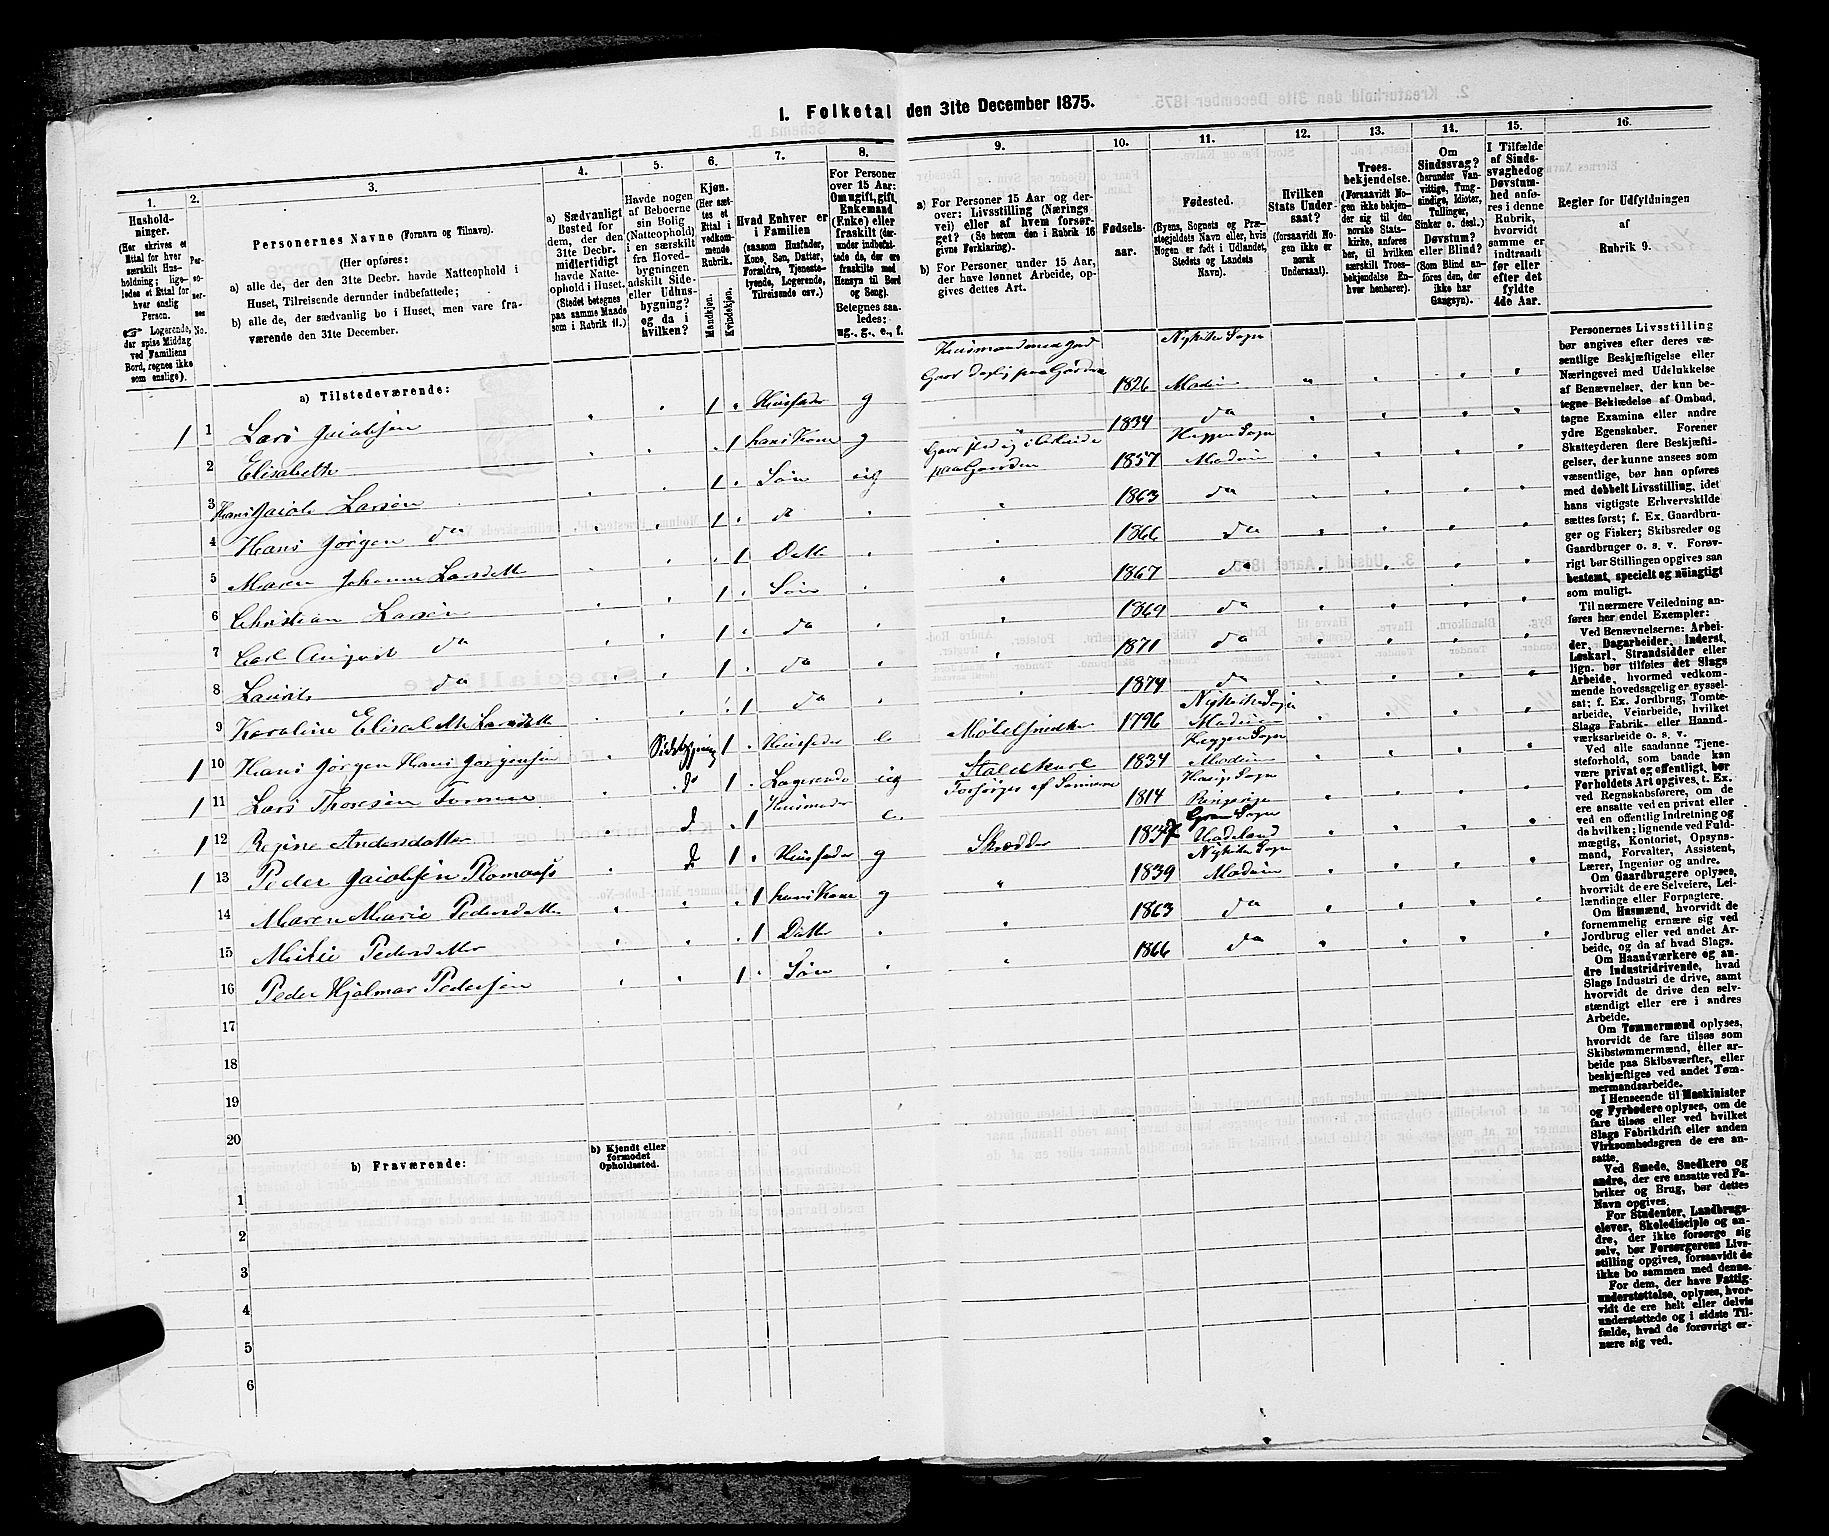 I. Folketal den 31te December 1875.
1. 2. 3. 4. 5. 6. 7. 8. 9. 10. 11. 12. 13. 14. 15. 16.
Husholdninger.
(Her skrives et Ettal for hver særskilt Husholdning; ligeledes et Ettal for hver enslig Person.
Logerende, der spise Middag ved Familiens Bord, regnes ikke som enslige).
Personernes No.
Personernes Navne (Fornavn og Tilnavn).
(Her opføres:
a) alle de, der den 31te Decbr. havde Natteophold i Huset, Tilreisende derunder indbefattede;
b) alle de, der sædvanlig bo i Huset, men vare fraværende den 31te December.
a) Sædvanligt Bosted for dem, der den 31te Decbr. midlertidigt havde Natteophold i Huset.
(Stedet betegnes paa samme Maade som i Rubrik 11.)
Havde nogen af Beboerne sin Bolig (Natteophold) i en særskilt fra Hovedbygningen adskilt Side- eller Udhusbygning? og da i hvilken?
Kjøn.
(Her sættes et Ettal i vedkommende Rubrik.
Mandkjøn. Kvindekjøn.
Hvad Enhver er i Familien
(saasom Husfader, Kone, Søn, Datter, Forældre, Tjenestetyende, Logerende, Tilreisende osv.)
For Personer over 15 Aar: Om ugift, gift, Enkemand (Enke) eller fraskilt (derunder indbefattede de, der ere fraskilte med Hensyn til Bord og Seng).
Betegnes saaledes: ug., g., e., f.
a) For Personer 15 Aar og derover: Livsstilling (Næringsvei) eller af hvem forsørget? (Se herom den i Rubrik 16 givne Forklaring).
b) For Personer under 15 Aar, der have lønnet Arbeide, opgives dettes Art.
Fødselsaar.
Fødested.
(Byens, Sognets og Præstegjeldets Navn eller, hvis Nogen er født i Udlandet, Stedets og Landets Navn).
Hvilken Stats Undersaat?
(forsaavidt Nogen ikke er norsk Undersaat).
Troesbekjendelse.
(Forsaavidt Nogen ikke bekjender sig til den norske Statskirke, anføres her, til hvilken særskilt Troesbekjendelse Enhver henhører).
Om Sindssvag? (herunder Vanvittige, Tungsindige, Idioter, Tullinger, Sinker o. desl.) Døvstum? eller Blind?
(Som Blind anføres den, der ikke har Gangsyn).
I Tilfælde af Sindssvaghed og Døvstumhed anføres i denne Rubrik, hvorvidt samme er indtraadt før eller efter det fyldte 4de Aar.
Regler for Udfyldningen af Rubrik 9.
a) Tilstedeværende:
1 1 Lars Jacobsen 1 Husfader g 1826 Modum
2 Elisabeth 1 hans Kone g 1834 do
3 Hans Jacob Larsen 1 Søn ug 1857 Modum
4 Hans Jørgen do 1 do 1863 do
5 Maren Johanne Larsdatt 1 Datt 1866 do
6 Christian Larsen 1 Søn 1867 do
7 Carl August do 1 do 1869 do
8 Laurits do 1 do 1871 do
9 Karoline Elisabeth Larsdatt 1 do 1874 do
1 10 Hans Jørgen Hans Jørgensen Sidebygning 1 Husfader e 1796 Nykirke Sogn Modum
1 11 Lars Thoresen 1 Logerende ug Staldkarl 1834 Heggen Sogn Modum
1 12 Regine Andersdatter 1 e. Forsørges af Sønnerne 1814 Ringerige
1 13 Peder Jacobsen 1 Husfader g Skrædder Gran Sogn Hadeland
14 Maren Marie Pedersdatt 1 hans Kone g 1839 Nykirke Sogn Modum
15 Pedersdatter 1 Datter 1863 do
16 Peder Hjalmar Pedersen 1 Søn 1866 do
17
18
19
20
b) Fraværende:
b) Kjendt eller formodet Opholdssted.
1
2
3
4
5
6
Personernes Livsstilling bør angives efter deres væsentlige Beskjæftigelse eller Næringsvei med Udelukkelse af Benævnelser, der kun betegne Beklædelse af Ombud, tagne Examina eller andre ydre Egenskaber. Forener Skatteyderen flere Beskjæftigelser, der kunne ansees som væsentlige, bør han opføres med dobbelt Livsstilling, idet hans vigtigste Erhvervskilde sættes først; f. Ex. Gaardbruger og Fisker; Skibsreder og Gaardbruger o. s. v. Forøvrigt bør Stillingen opgives saa bestemt, specielt og nöiagtigt som muligt.
Til nærmere Veiledning anføres her endel Exempler:
Ved Benævnelserne: Arbeider, Dagarbeider, Inderst, Løskarl, Strandsidder eller lign. bør tilføies det Slags Arbeide, hvormed vedkommende hovedsagelig er sysselsat; f. Ex. Jordbrug, Tomtearbeide, Veiarbeide, hvilket Slags Fabrik- eller Haandværksarbeide o. s. v.
Ved alle saadanne Tjenesteforhold, som baade kan være privat og offentligt, bør Forholdets Art opgives, t. Ex. ved Regnskabsførere, om de ere ansatte ved en privat eller ved en offentlig Indretning og da hvilken; lignende ved Fuldmægtig, Kontorist, Opsynsmand, Forvalter, Assistent, Lærer, Ingeniør og andre.
Om Gaardbrugere oplyses, hvorvidt de ere Selveiere, Leilændinge eller Forpagtere.
Om Husmænd, hvorvidt de fornemmelig ernære sig ved Jordbrug eller ved andet Arbeide, og da af hvad Slags.
Om Haandværkere og andre Industridrivende, hvad Slags Industri de drive, samt hvorvidt de drive den selvstændigt eller ere i andres Arbeide.
Om Tømmermænd oplyses, hvorvidt de fare tilsøs som Skibstømmermænd, eller arbeide paa Skibsværfter, eller beskjæftiges ved andet Tømmermandsarbeide.
I Henseende til Maskinister og Fyrbødere oplyses, om de fare tilsøs eller ved hvilket Slags Fabrikdrift eller anden Virksomhedsgren de ere ansatte.
Ved Smede, Snedkere og andre, der ere ansatte ved Fabriker og Brug, bør dettes Navn opgives.
For Studenter, Landbrugselever, Skoledisciple og andre, der ikke forsørge sig selv, bør Forsørgerens Livsstilling opgives, forsaavidt de ikke bo sammen med denne.
For dem, der have Fattigunderstøttelse, oplyses, hvorvidt de ere helt eller delvis understøttede og i sidste Tilfælde, hvad de forøvrigt ernære sig ved.